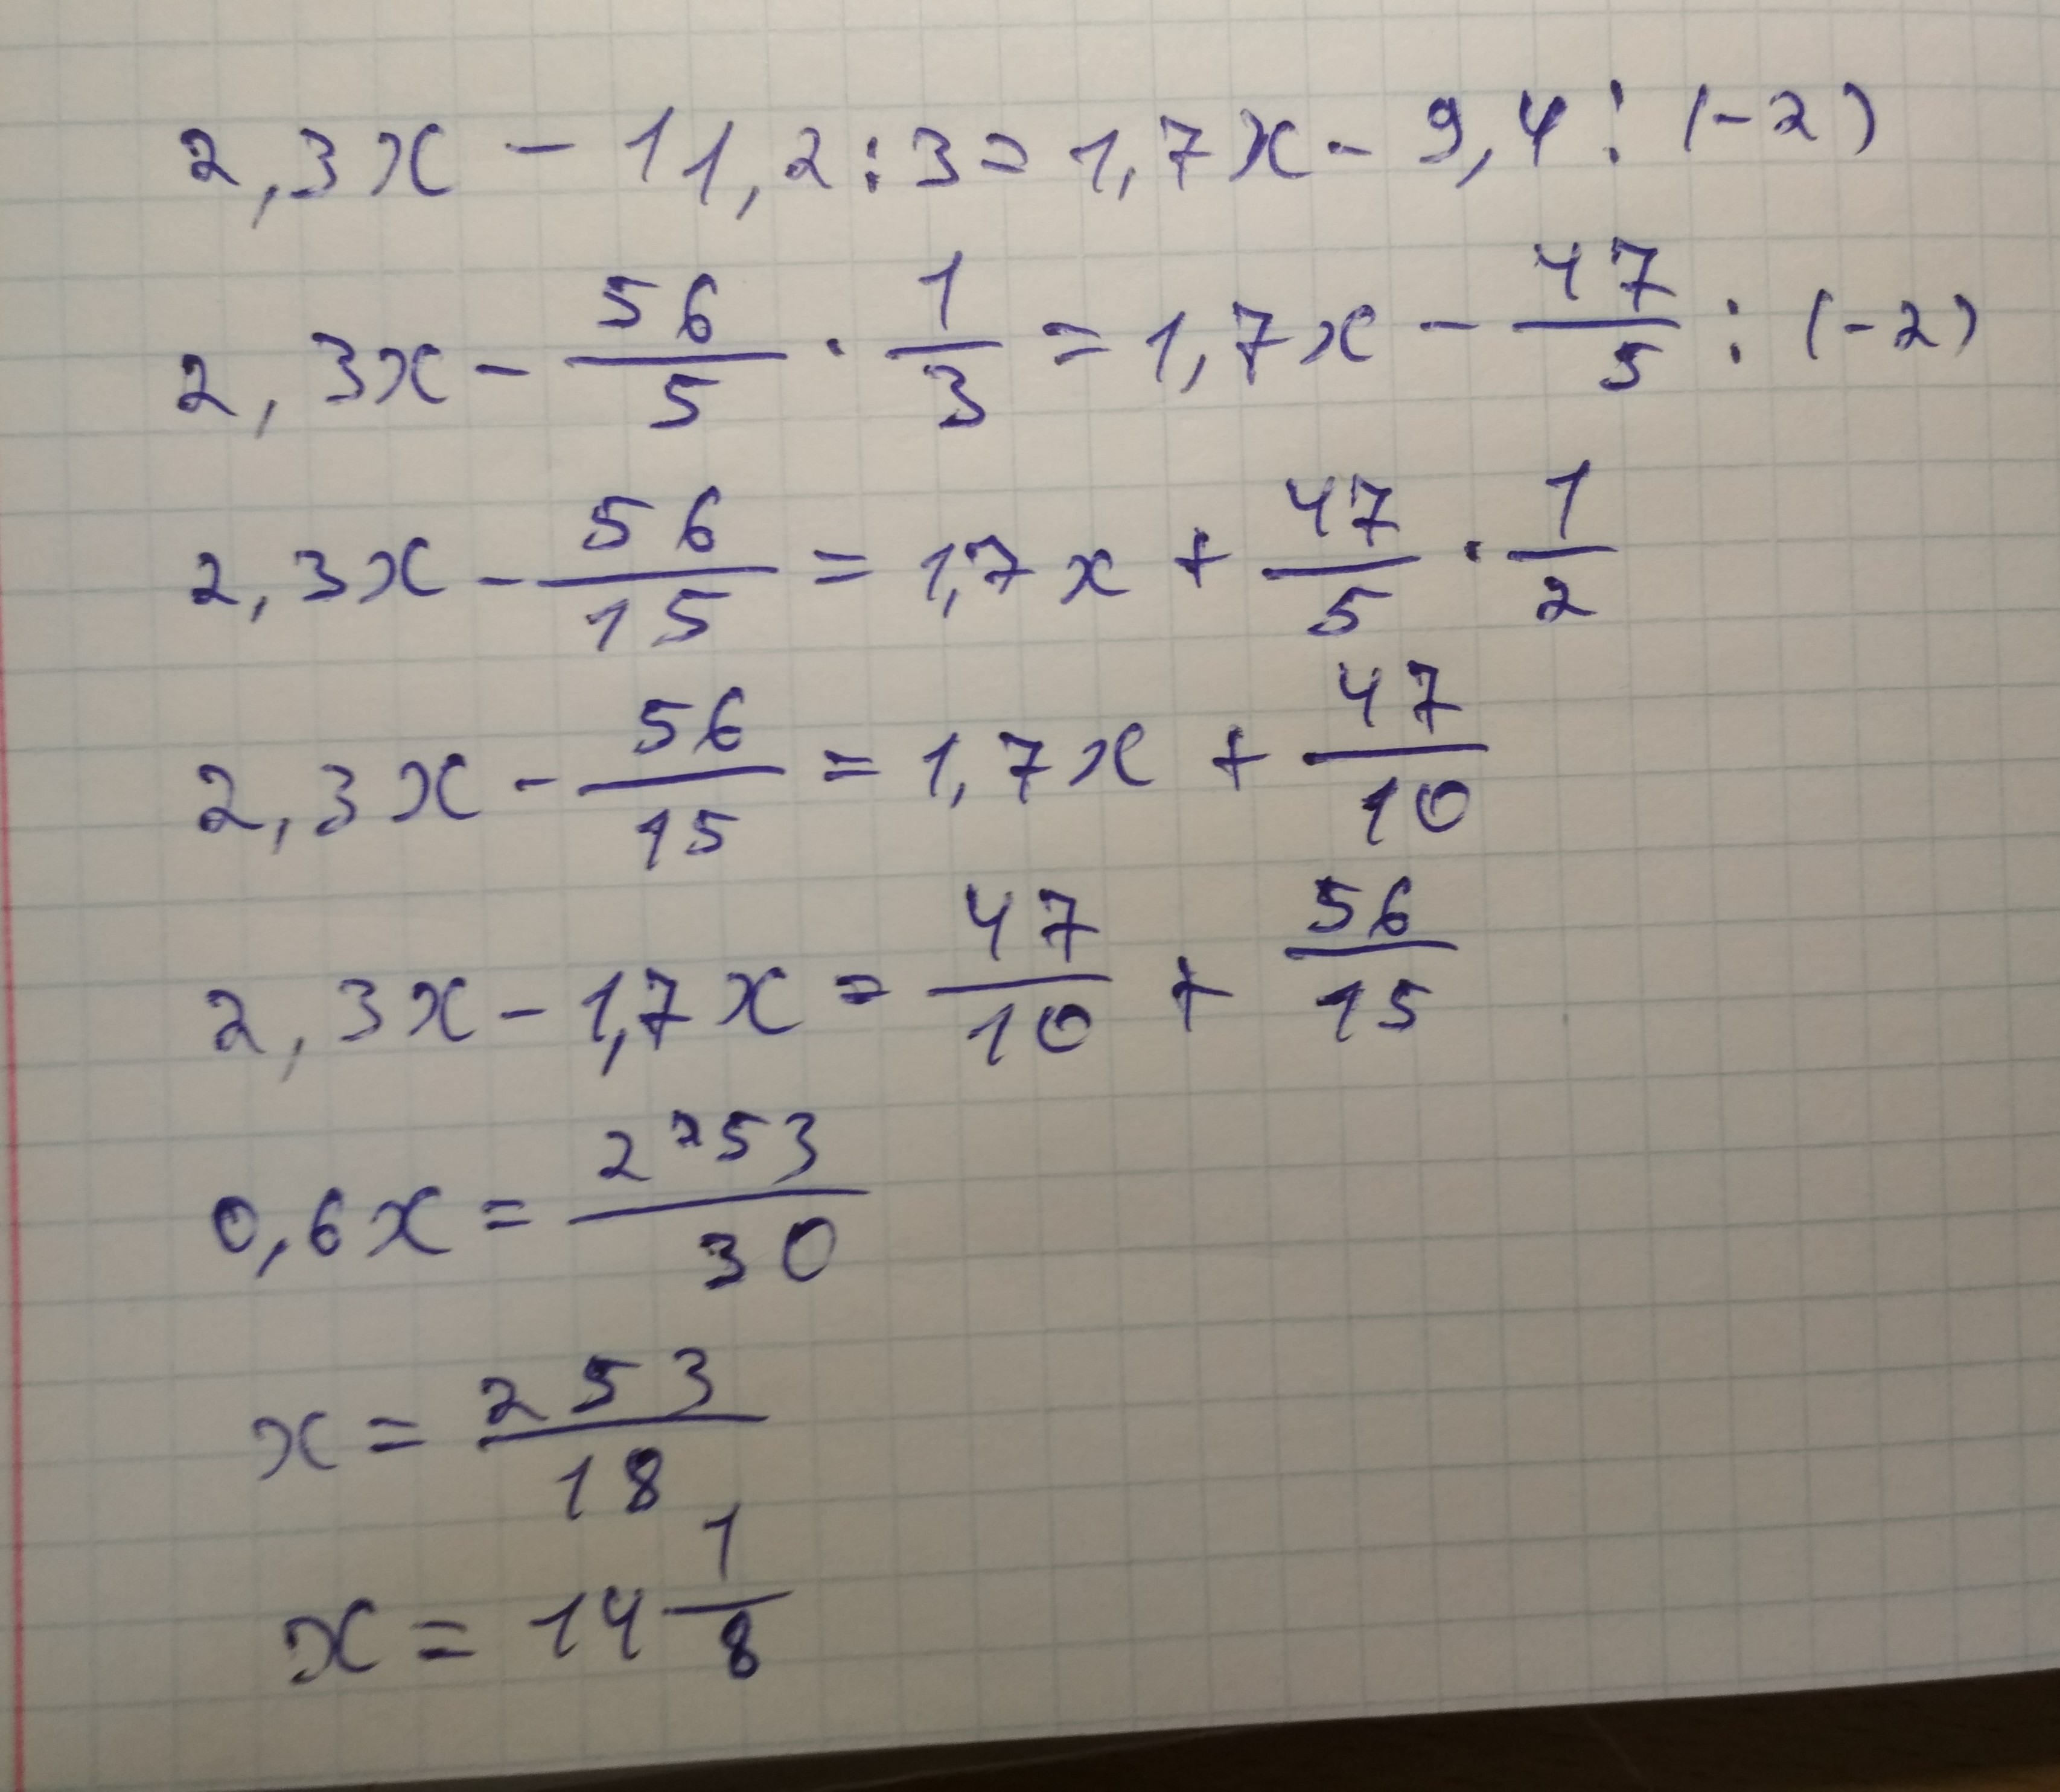 2,3x - 11,2 : 3 = 1,7x - 9,4 : (-2)
2,3x - 56/5 · 1/3 = 1,7x - 47/5 : (-2)
2,3x - 56/15 = 1,7x + 47/5 · 1/2
2,3x - 56/15 = 1,7x + 47/10
2,3x - 1,7x = 47/10 + 56/15
0,6x = 253/30
x = 253/18
x = 14 1/8